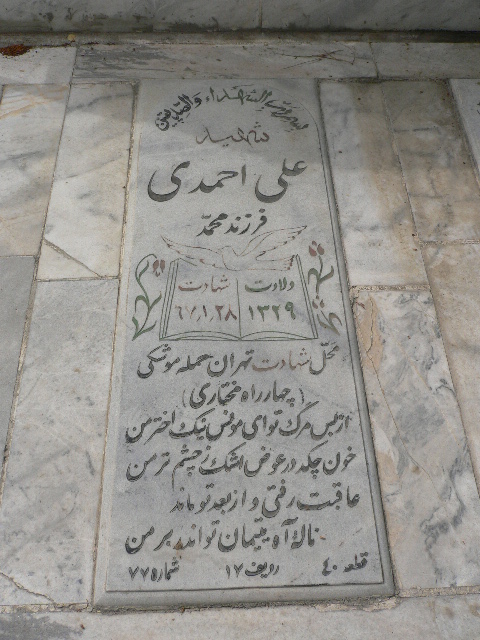 بسم رب الشهداء والصدیقین
شهید
علی احمدی
فرزند محمد
ولادت شهادت
۱۳۲۹ ۶۷.۱.۲۸
محل شهادت تهران حمله موشکی
(چهارراه مختاری)
از پس مرگ تو ای مونس نیک اختر من
خون چکد در عوض اشک ز چشم تر من
عاقبت رفتی و از بعد تو ماند
ناله آه یتیمان تو اندر بر من
قطعه ۴۰ ردیف ۱۷ شماره ۷۷